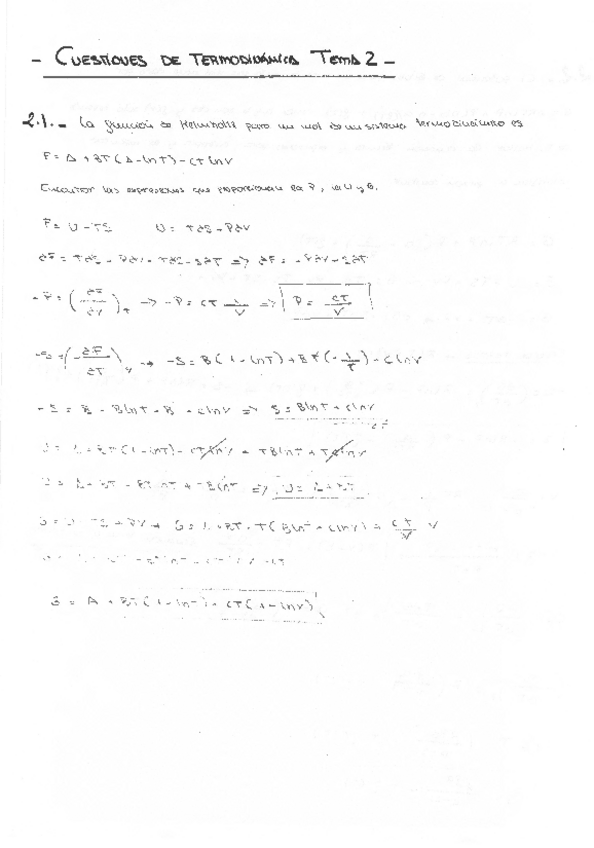 - CUESTIONES DE TERMODINÁMICA TEMA 2 -
2.1.- La función de Helmholtz para un mol de un sistema termodinámico es
F = A + BT(1-lnT) - CT lnV
Encontrar las expresiones que proporcionen la P, la U y G.
F = U - TS   U = T∂S - P∂V
∂F = T∂S - P∂V - T∂S - S∂T => ∂F = -P∂V - S∂T
-P = (∂F/∂V)T -> -P = CT 1/V => P = CT/V
-S = (∂F/∂T)V -> -S = B(1-lnT) + BT(-1/T) - C lnV
-S = B - BlnT - B - ClnV => S = BlnT + ClnV
U = A + BT(1-lnT) - CT lnV + TBlnT + TClnV
U = A + BT - BT lnT + TBlnT => U = A + BT
G = U - TS + PV -> G = A + BT - T(BlnT + ClnV) + CT/V V
G = A + BT(1-lnT) + CT(1-lnV)